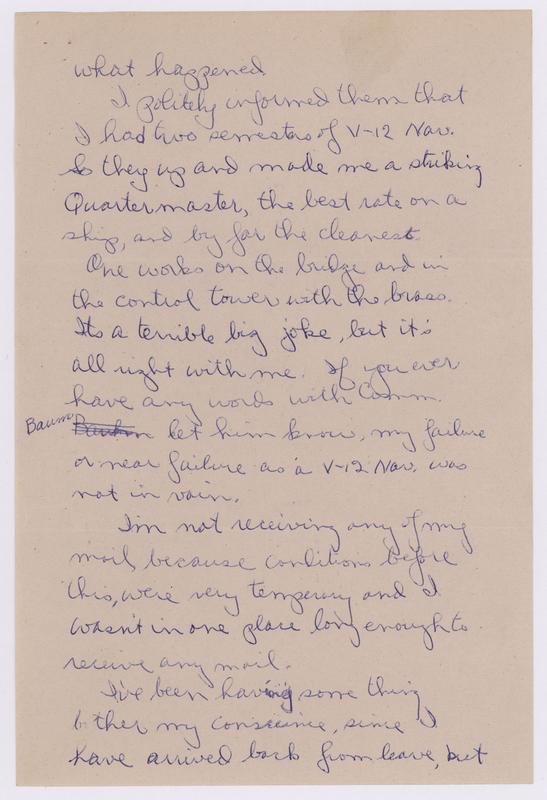 what happened.
I politely informed them that
I had two semesters of V-12 Nav.
So they up and made me a striking
Quartermaster, the best rate on a
ship, and by far the cleanest.
One works on the bridge and in
the control tower with the brass.
Its a terrible big joke, but it's
all right with me. If you ever
have any words with Comm.
Baum let him know, my failure
or near failure as a V-12 Nav. was
not in vain.
I'm not receiving any of my
mail, because conditions before
this, were very temperary and I
wasn't in one place long enough to
receive any mail.
I've been having some thing
bother my conscience, since I
have arrived back from leave, but